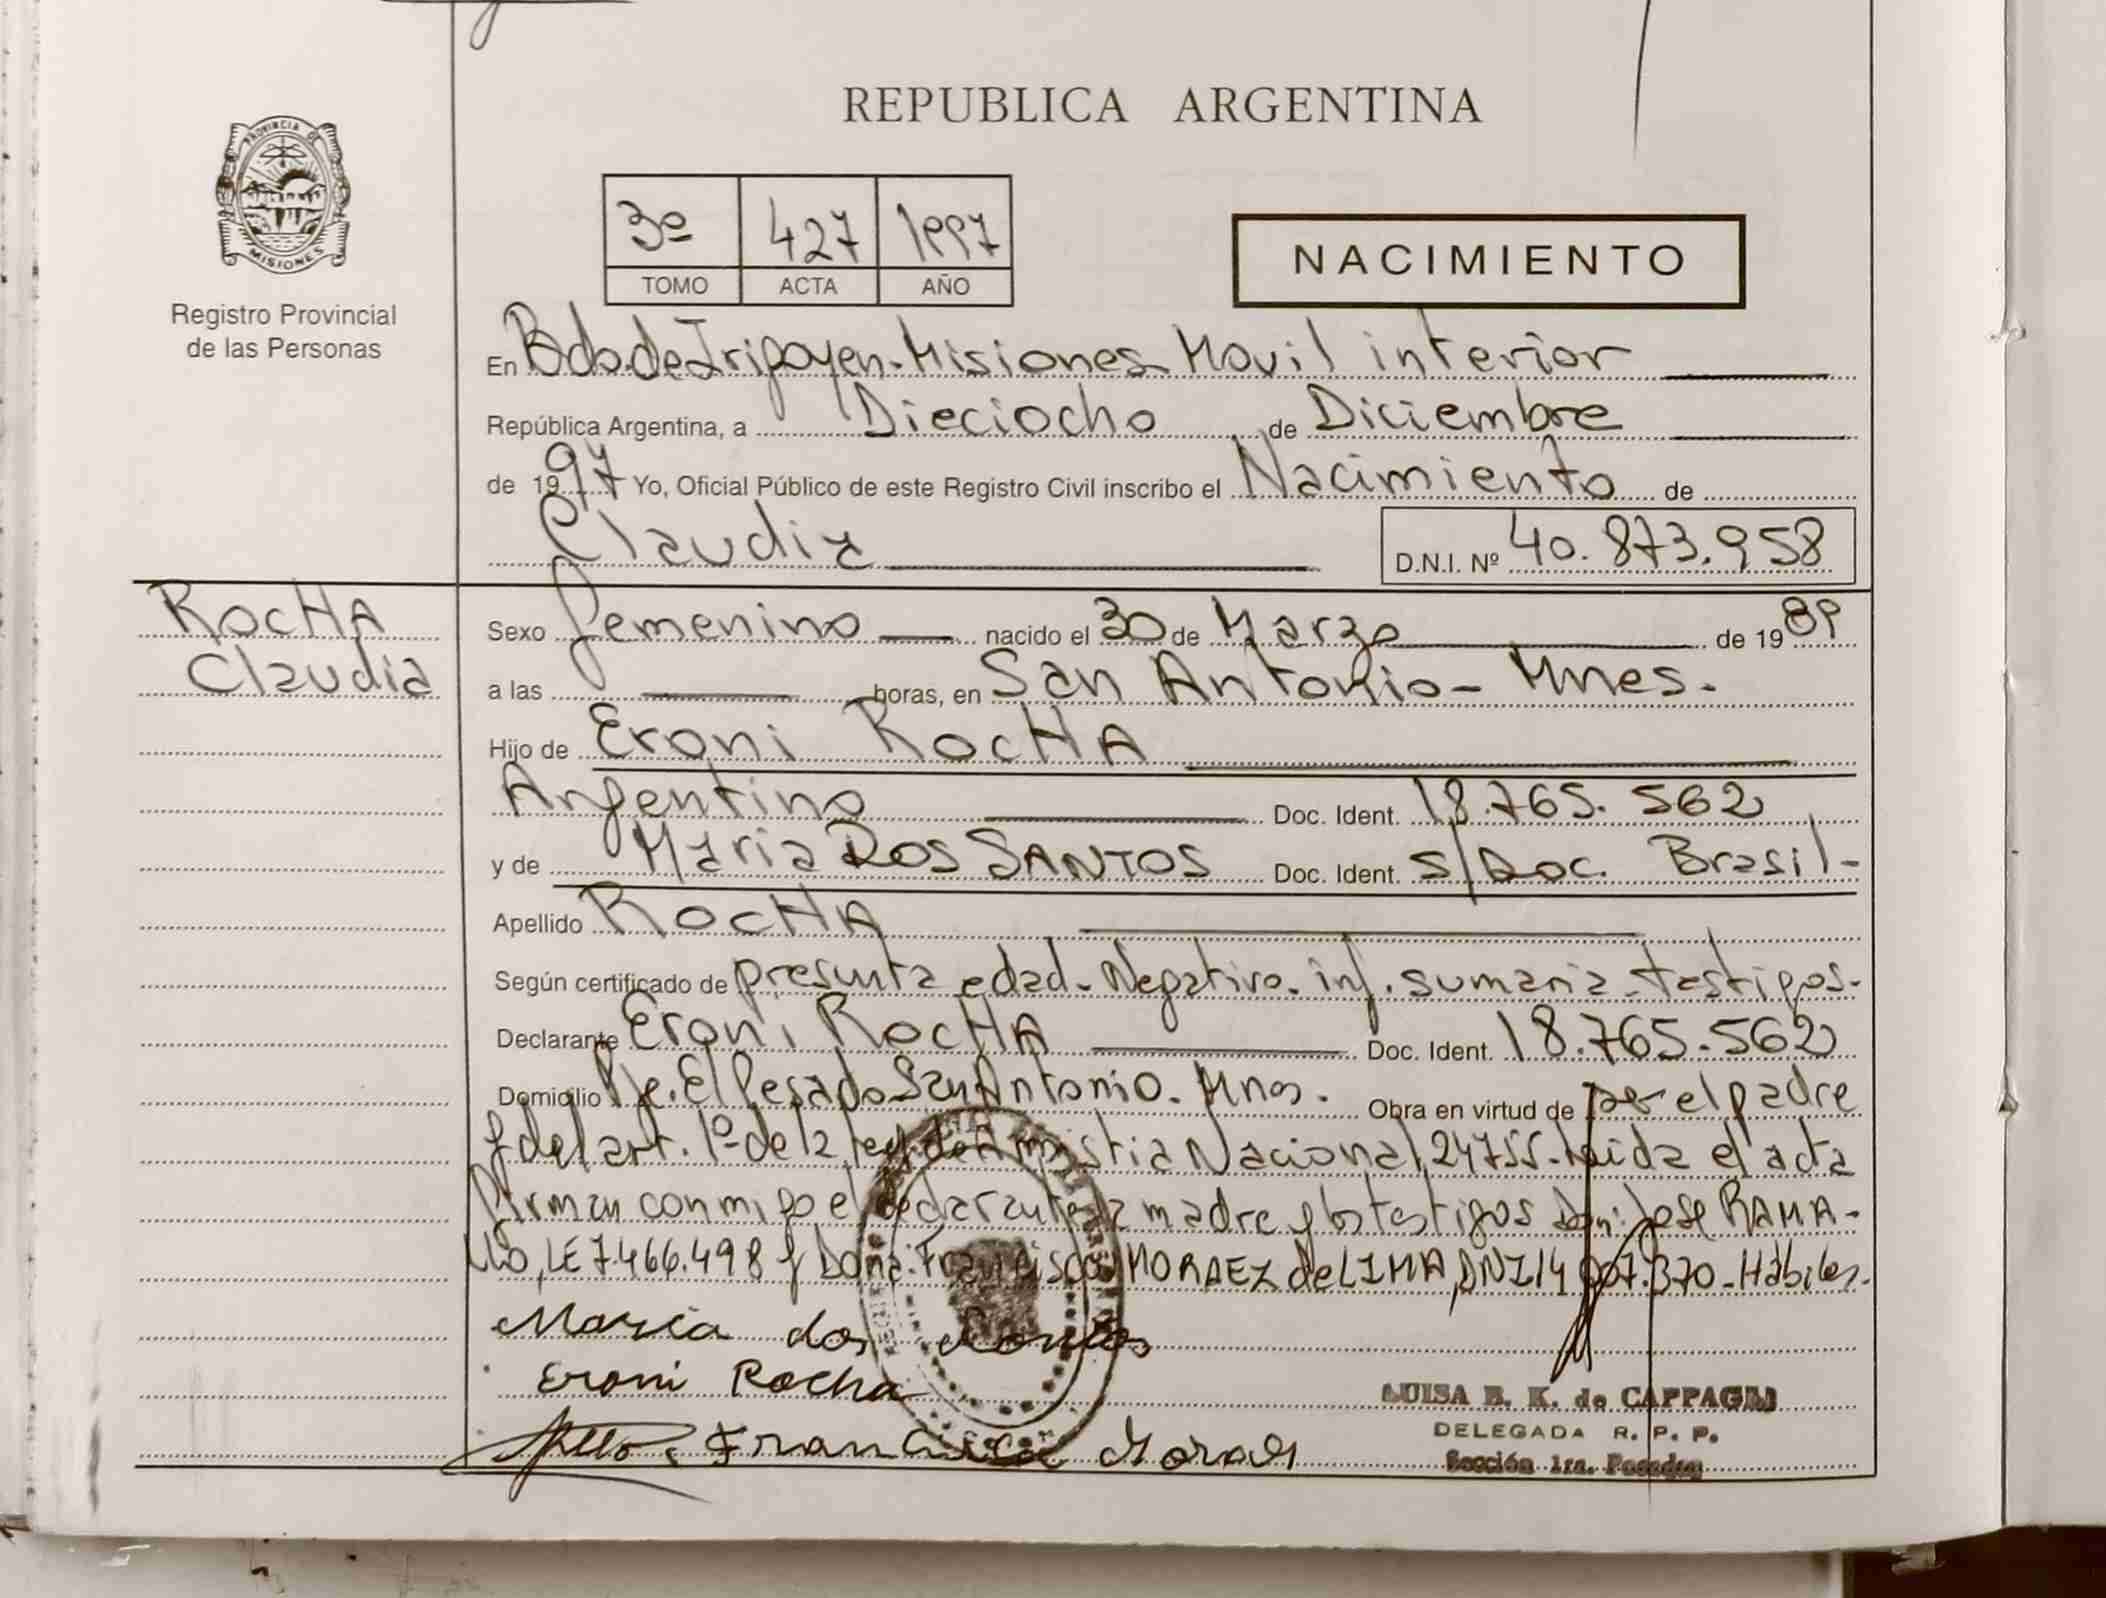 REPUBLICA ARGENTINA
PROVINCIA DE
MISIONES
Registro Provincial
de las Personas
3º 427 1997
TOMO ACTA AÑO
NACIMIENTO
En Bdo. de Irigoyen - Misiones Movil interior
República Argentina, a Dieciocho de Diciembre
de 1997 Yo, Oficial Público de este Registro Civil inscribo el Nacimiento de
Claudia D.N.I. Nº 40.873.958
RocHA
Claudia
Sexo Femenino nacido el 30 de Marzo de 1989
a las horas, en San Antonio - Mnes.
Hijo de Eroni RocHA
Argentino Doc. Ident. 18.765.562
y de Maria DOS SANTOS Doc. Ident. S/Doc. Brasil-
Apellido RocHA
Según certificado de presunta edad - Negativo. inf. sumaria - testigos.
Declarante Eroni RocHA Doc. Ident. 18.765.562
Domicilio Pje. El Pesado San Antonio. Mnes. Obra en virtud de ser el padre
y del art. 1º de la ley de Amnistia Nacional 24755. Leida el acta
firman conmigo el declarante la madre y los testigos Don: Jose RAMA-
LLO, LE 7.466.498 y Doña: Francisca MORAEZ de LIMA, DNI 14.007.370 - Hábiles.
Maria dos Santos
Eroni Rocha
Francisca Moraes
LUISA B. K. de CAPPAGLI
DELEGADA R. P. P.
Sección 1ra. Posadas